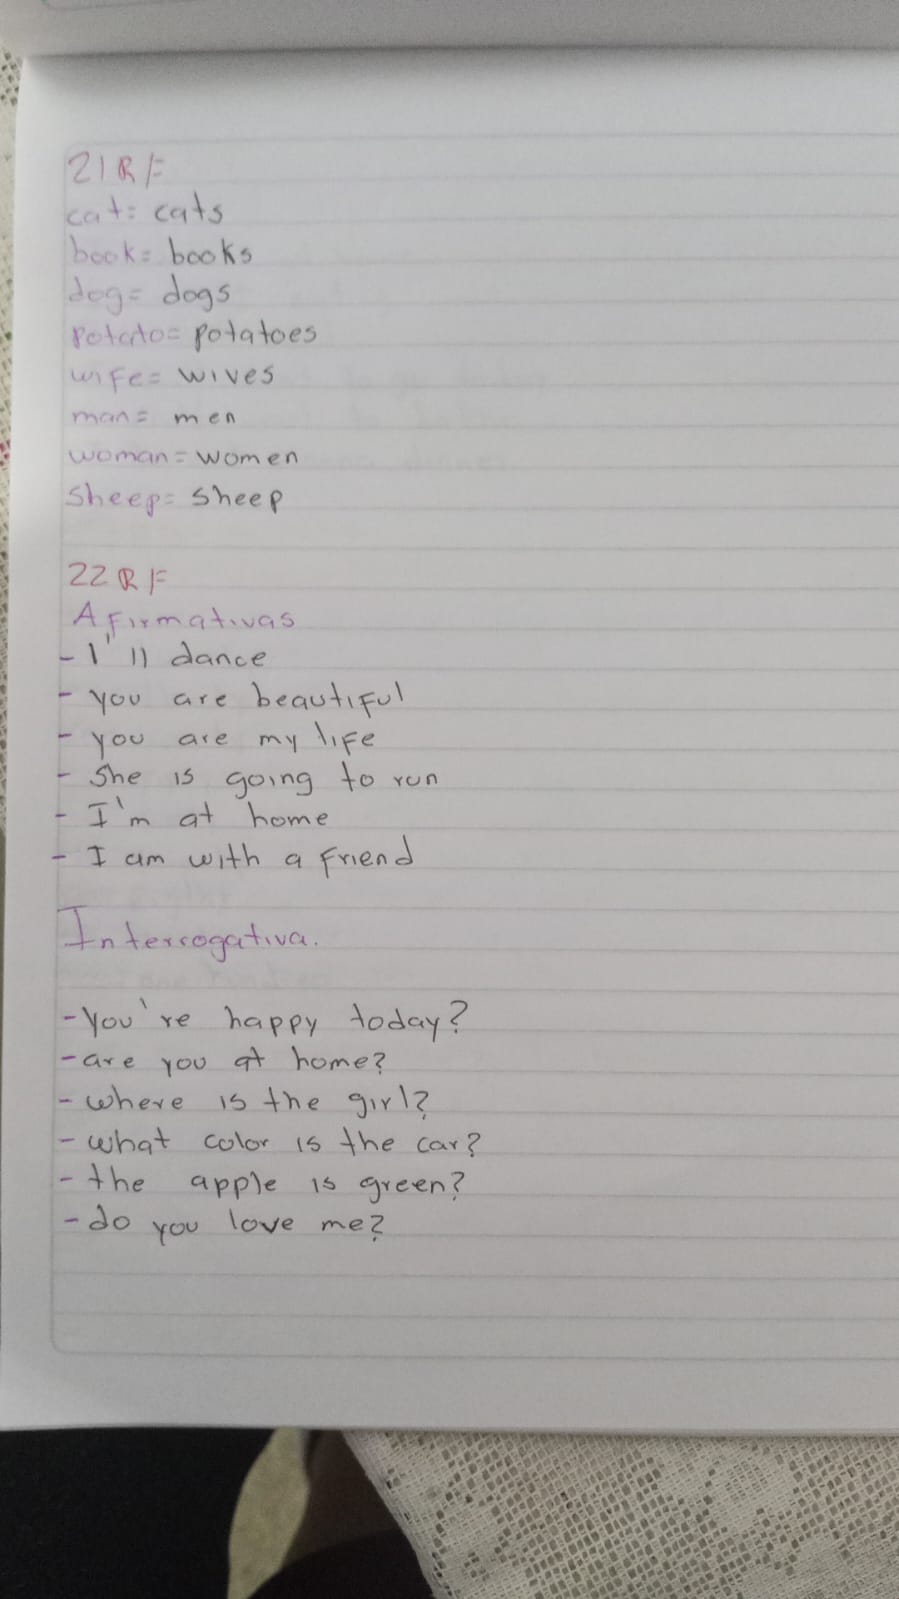 21 R/=
cat= cats
book= books
dog= dogs
Potato= potatoes
wife= wives
man= men
woman= women
Sheep= Sheep
22 R/=
Afirmativas
- I'll dance
- you are beautiful
- you are my life
- She is going to run
- I'm at home
- I am with a friend
Interrogativa.
- you're happy today?
- are you at home?
- where is the girl?
- what color is the car?
- the apple is green?
- do you love me?